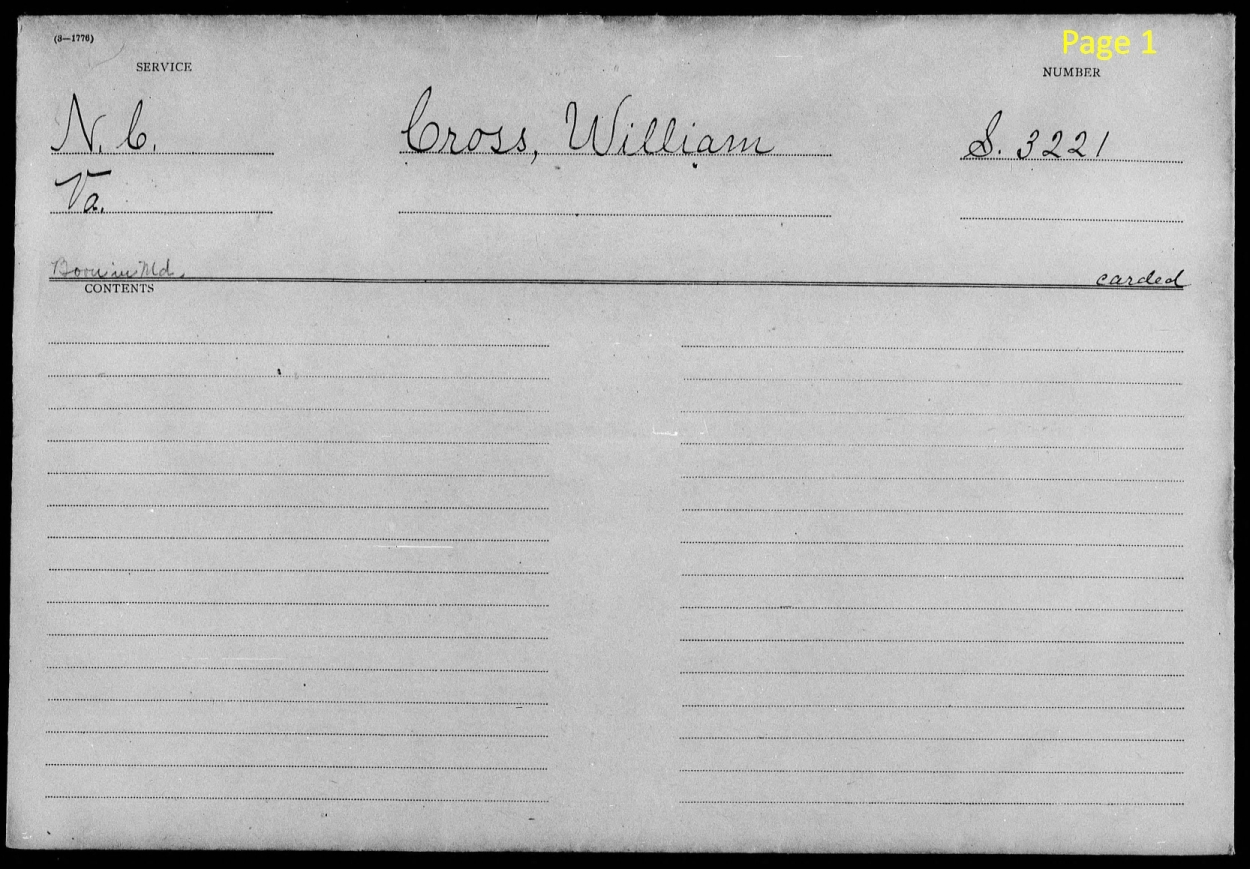 (3—1776)
Page 1
SERVICE
NUMBER
N. C.
Cross, William
S. 3221
Va.
Born in Md.
carded
CONTENTS